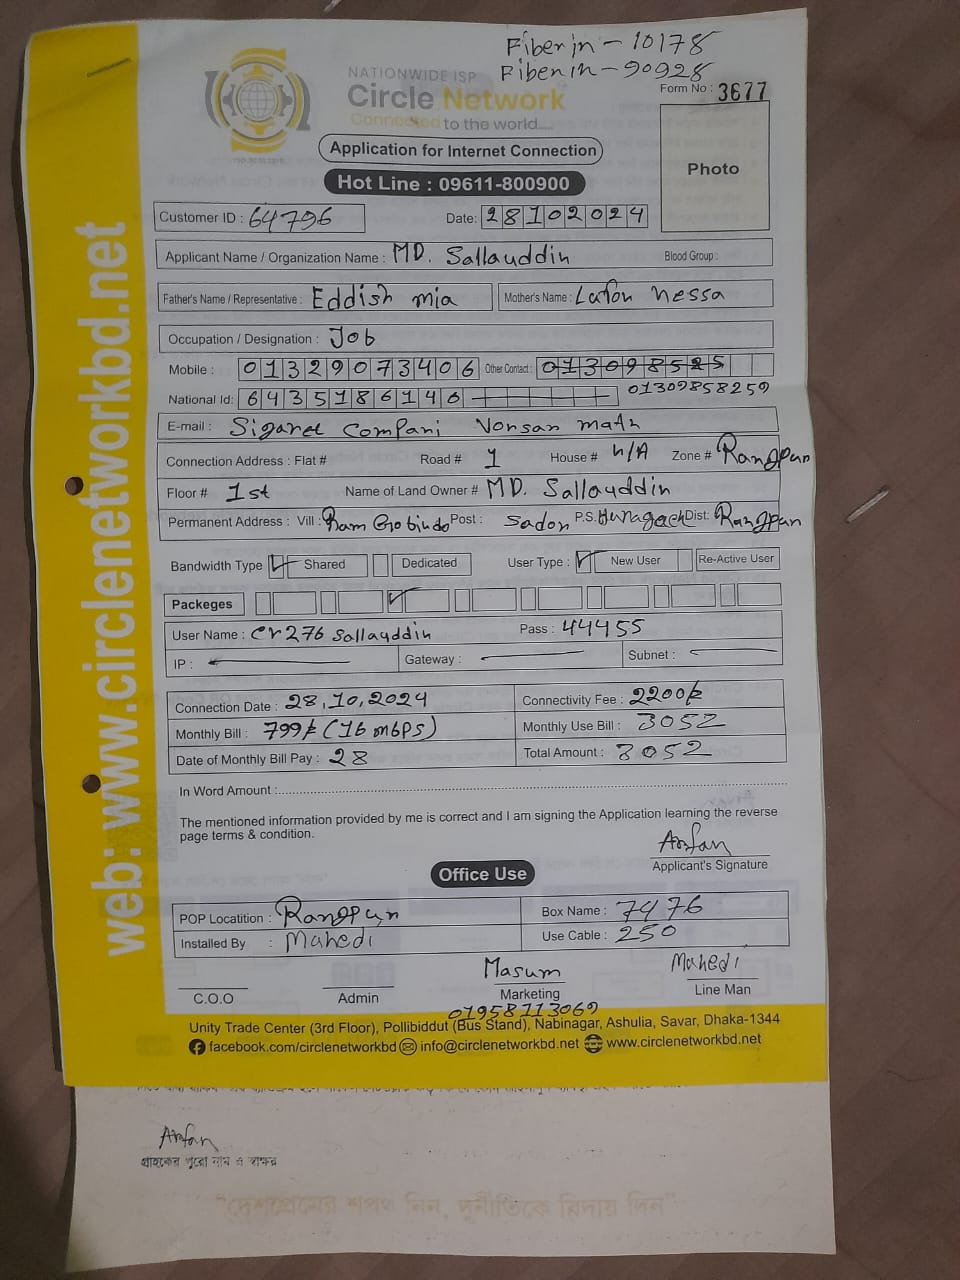 Fiberin - 10178
Fiberin - 90928
NATIONWIDE ISP
Circle Network
Connected to the world....
Form No : 3677
Photo
Application for Internet Connection
Hot Line : 09611-800900
Customer ID : 64796
Date: 28102024
Applicant Name / Organization Name : MD. Sallauddin Blood Group :
Father's Name / Representative : Eddish mia Mother's Name : Lafon Nessa
Occupation / Designation : Job
Mobile : 01329073406 Other Contact : 013098525
National Id: 6435186140 01309858259
E-mail : Sigaret Compani Vorsar math
Connection Address : Flat # Road # 1 House # N/A Zone # Rangpur
Floor # 1st Name of Land Owner # MD. Sallauddin
Permanent Address : Vill : Ram Gobindo Post : Sador P.S. Haragach Dist: Rangpur
Bandwidth Type Shared Dedicated User Type : New User Re-Active User
Packeges
User Name : cr276 sallauddin Pass : 44455
IP : Gateway : Subnet :
Connection Date : 28,10,2024 Connectivity Fee : 2200/-
Monthly Bill : 799/- (16 mbps) Monthly Use Bill : 3052
Date of Monthly Bill Pay : 28 Total Amount : 3052
In Word Amount :
The mentioned information provided by me is correct and I am signing the Application learning the reverse
page terms & condition.
Arfan
Applicant's Signature
Office Use
POP Locatition : Rangpur Box Name : 7476
Installed By : Mahedi Use Cable : 250
C.O.O
Admin
Masum
Marketing
01958113069
Mahedi
Line Man
Unity Trade Center (3rd Floor), Pollibiddut (Bus Stand), Nabinagar, Ashulia, Savar, Dhaka-1344
facebook.com/circlenetworkbd info@circlenetworkbd.net www.circlenetworkbd.net
web: www.circlenetworkbd.net
Arfan
গ্রাহকের পুরো নাম ও স্বাক্ষর
"দেশপ্রেমের শপথ নিন, দুর্নীতিকে বিদায় দিন"